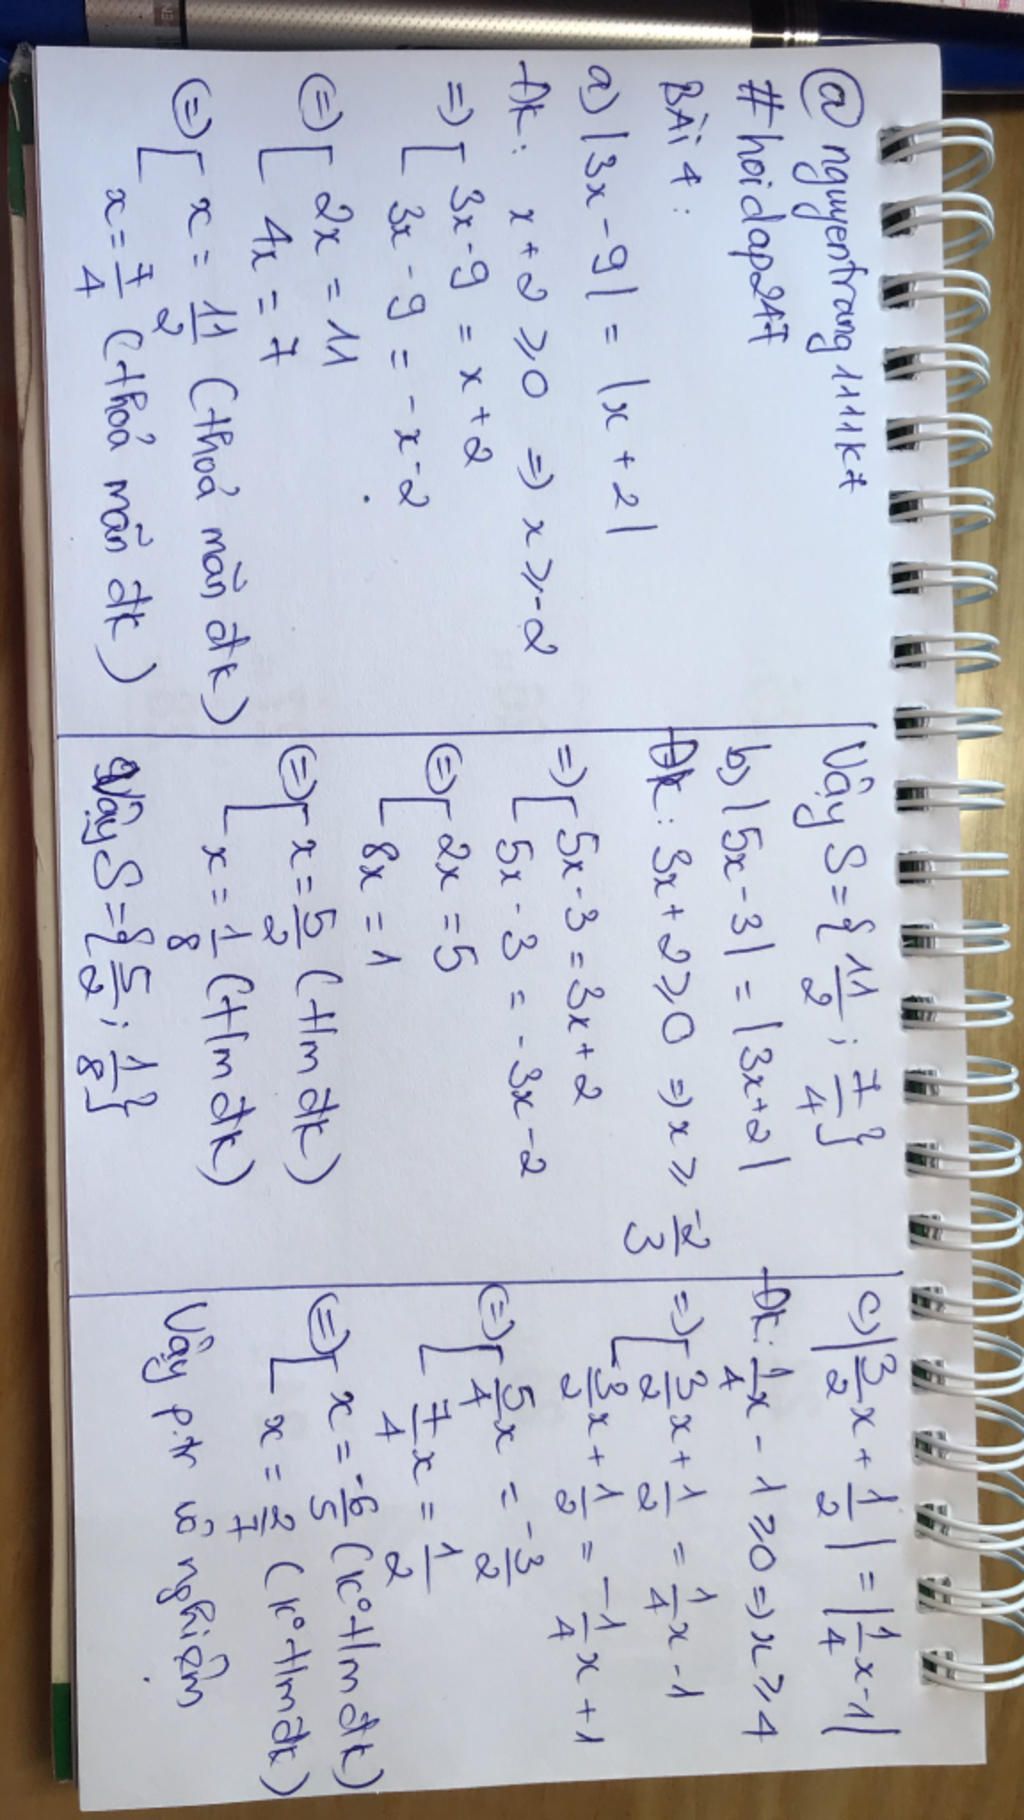 @ nguyentrang1111k7
#hoidap247
BÀi 4:
a) |3x - 9| = |x + 2|
Đk: x + 2 ⩾ 0 => x ⩾ -2
=> [ 3x - 9 = x + 2
3x - 9 = -x - 2
(=) [ 2x = 11
4x = 7
(=) [ x = 11/2 (thoả mãn đk)
x = 7/4 (thoả mãn đk)
Vậy S = { 11/2 ; 7/4 }
b) |5x - 3| = |3x + 2|
Đk: 3x + 2 ⩾ 0 => x ⩾ -2/3
=> [ 5x - 3 = 3x + 2
5x - 3 = -3x - 2
(=) [ 2x = 5
8x = 1
(=) [ x = 5/2 (t/m đk)
x = 1/8 (t/m đk)
Vậy S = { 5/2 ; 1/8 }
c) |3/2 x + 1/2| = |1/4 x - 1|
Đk: 1/4 x - 1 ⩾ 0 => x ⩾ 4
=> [ 3/2 x + 1/2 = 1/4 x - 1
3/2 x + 1/2 = -1/4 x + 1
(=) [ 5/4 x = -3/2
7/4 x = 1/2
(=) [ x = -6/5 (k° t/m đk)
x = 2/7 (k° t/m đk)
Vậy p.tr vô nghiệm.